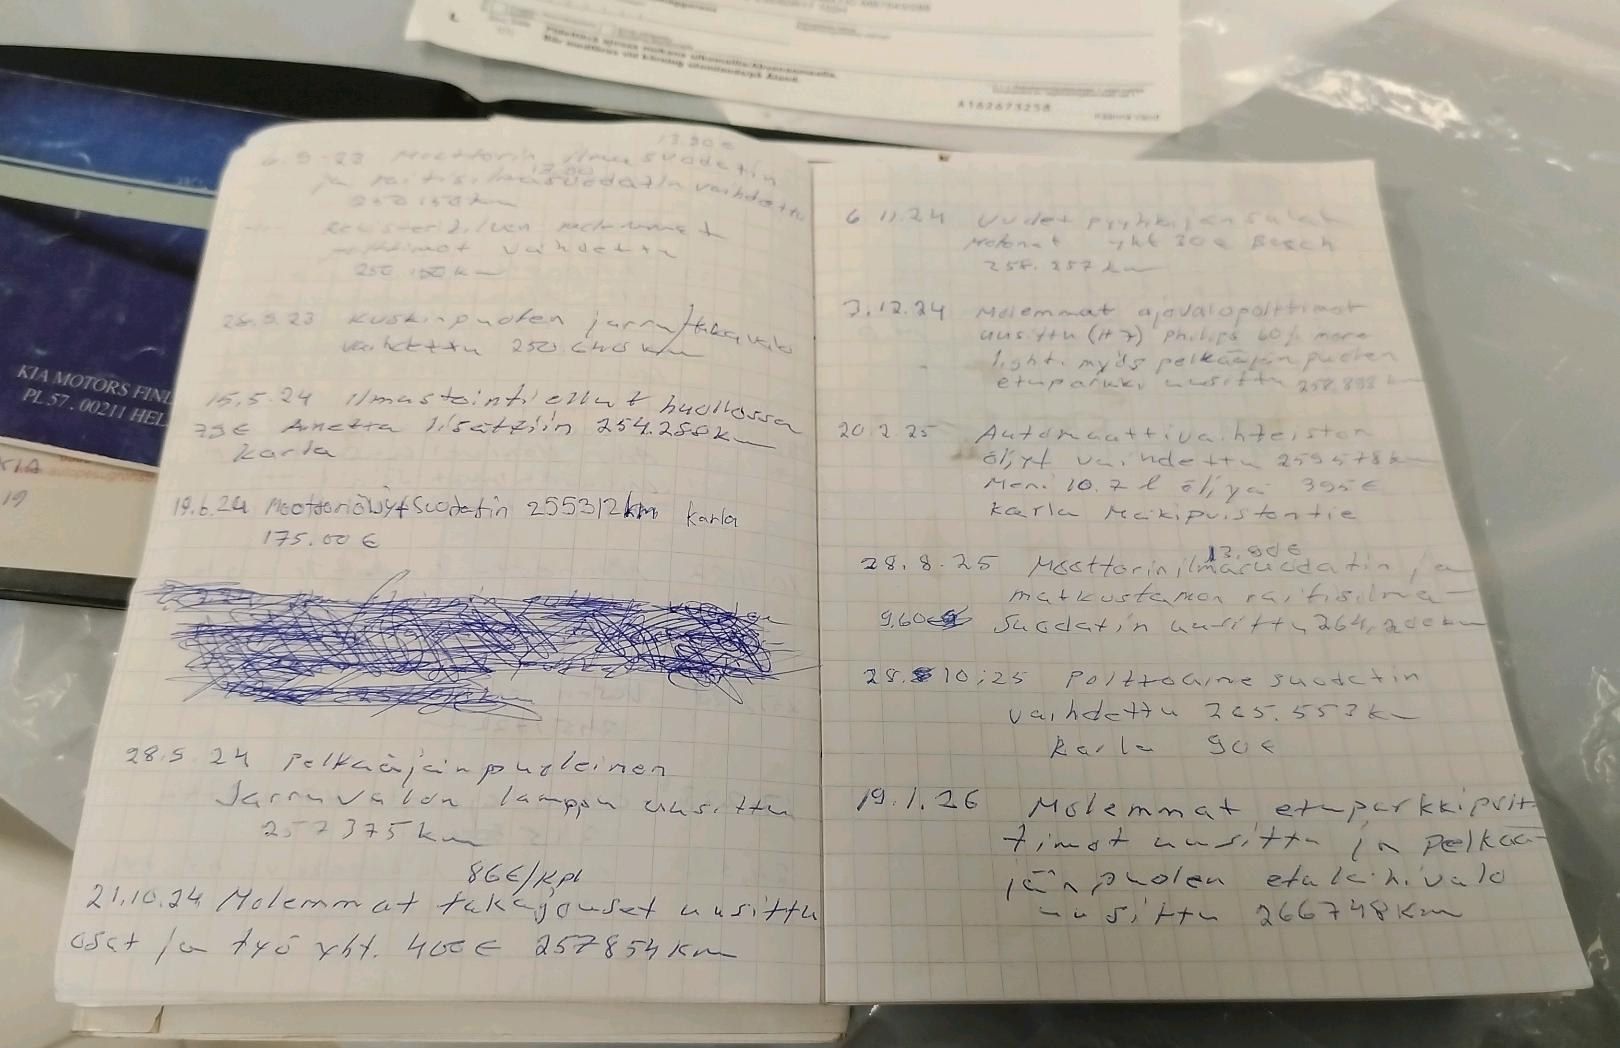 A162673258
Käännä
KIA MOTORS FINL
PL 57, 00211 HEL
19
13.90 €
6.9-23 Moottorin ilmasuodatin
ja raitisilmasuodatin vaihdettu
250 150 km
Rekisterikilven
polttimot vaihdettu
250.150 km
23 Kuskinpuolen jarru/takavalo
vaihdettu 250 640 km
15.5.24 Ilmastointi ollut huollossa
79€ Ainetta lisättiin 254.288 km
Karla
19.6.24 Moottoriöljyt Suodatin 255312 km Karla
175.00 €
28.5 24 Pelkääjänpuoleinen
Jarruvalon lamppu uusittu
257375 km
86€/kpl
21.10.24 Molemmat takajouset uusittu
osat ja työ yht. 400€ 257854 km
6 11.24 Uudet pyyhkijänsulat
Molemat yht 30€ Bosch
258.257 km
3.12.24 Molemmat ajovalopolttimot
uusittu (H7) Philips 60% more
light. myös pelkääjän puolen
etuparkki uusittu 258.888 km
20.2.25 Automaattivaihteiston
öljyt vaihdettu 259578 km
Meni 10.7 l öljyä 395€
Karla Mäkipuistontie
13.90€
28.8.25 Moottorinilmasuodatin ja
matkustamon raitisilma-
9.60€ Suodatin uusittu 264,200 km
28.10.25 Polttoainesuodatin
vaihdettu 265.553 km
Karla 90€
19.1.26 Molemmat etuparkkipolt-
timot uusittu ja Pelkää-
jän puolen etulähivalo
uusittu 266748 km